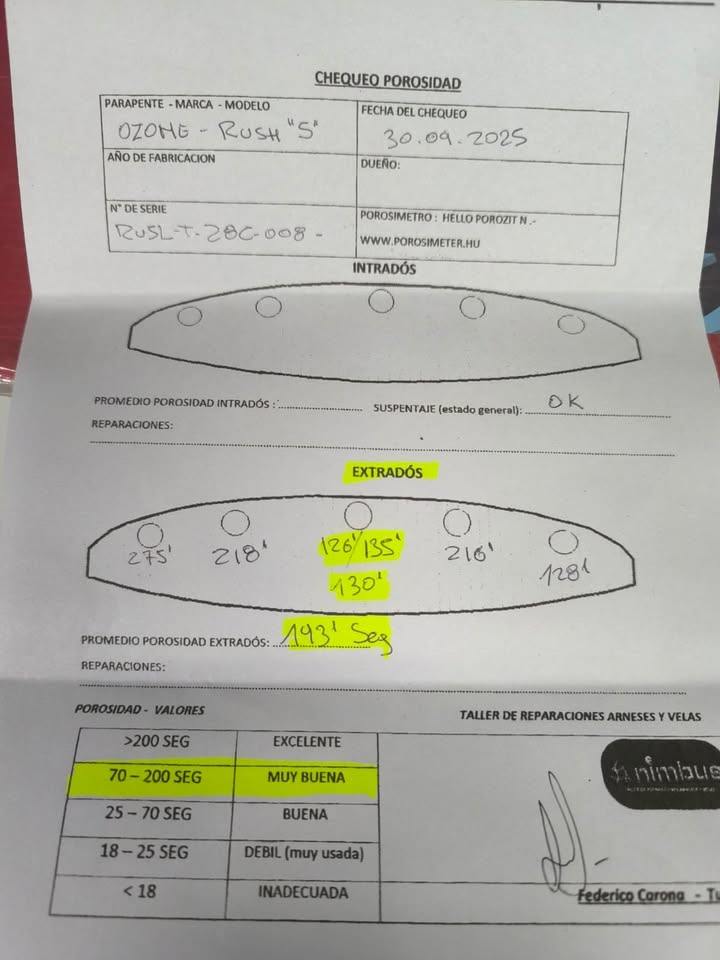 CHEQUEO POROSIDAD
PARAPENTE - MARCA - MODELO
OZONE - RUSH "5"
FECHA DEL CHEQUEO
30.09.2025
AÑO DE FABRICACION
DUEÑO:
N° DE SERIE
RUSL-T-28C-008-
POROSIMETRO : HELLO POROZIT N.-
WWW.POROSIMETER.HU
INTRADÓS
PROMEDIO POROSIDAD INTRADÓS : SUSPENTAJE (estado general): OK
REPARACIONES:
EXTRADÓS
275' 218' 126'/135' 216' 128'
130'
PROMEDIO POROSIDAD EXTRADÓS: 193' Seg
REPARACIONES:
POROSIDAD - VALORES
TALLER DE REPARACIONES ARNESES Y VELAS
>200 SEG EXCELENTE
70 – 200 SEG MUY BUENA
nimbus
25 – 70 SEG BUENA
18 – 25 SEG DEBIL (muy usada)
< 18 INADECUADA
Federico Carona - Tu